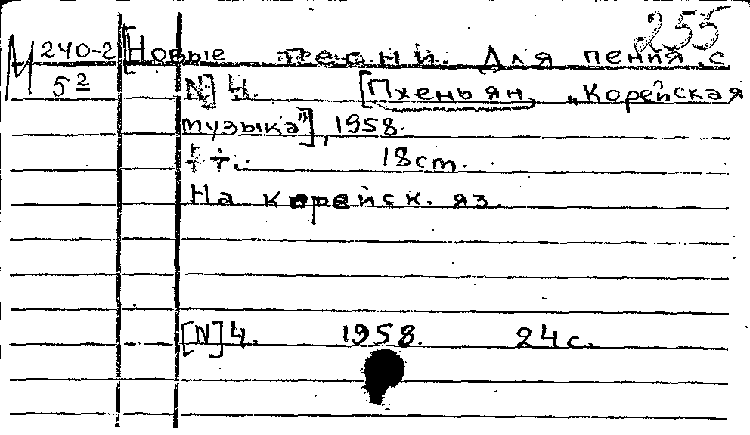 255
М 240-2 [Новые песни. Для пения с
5² N] 4. [Пхеньян, „Корейская
музыка"], 1958.
т. 18 cm.
На корейск. яз.
[N] 4. 1958. 24 с.